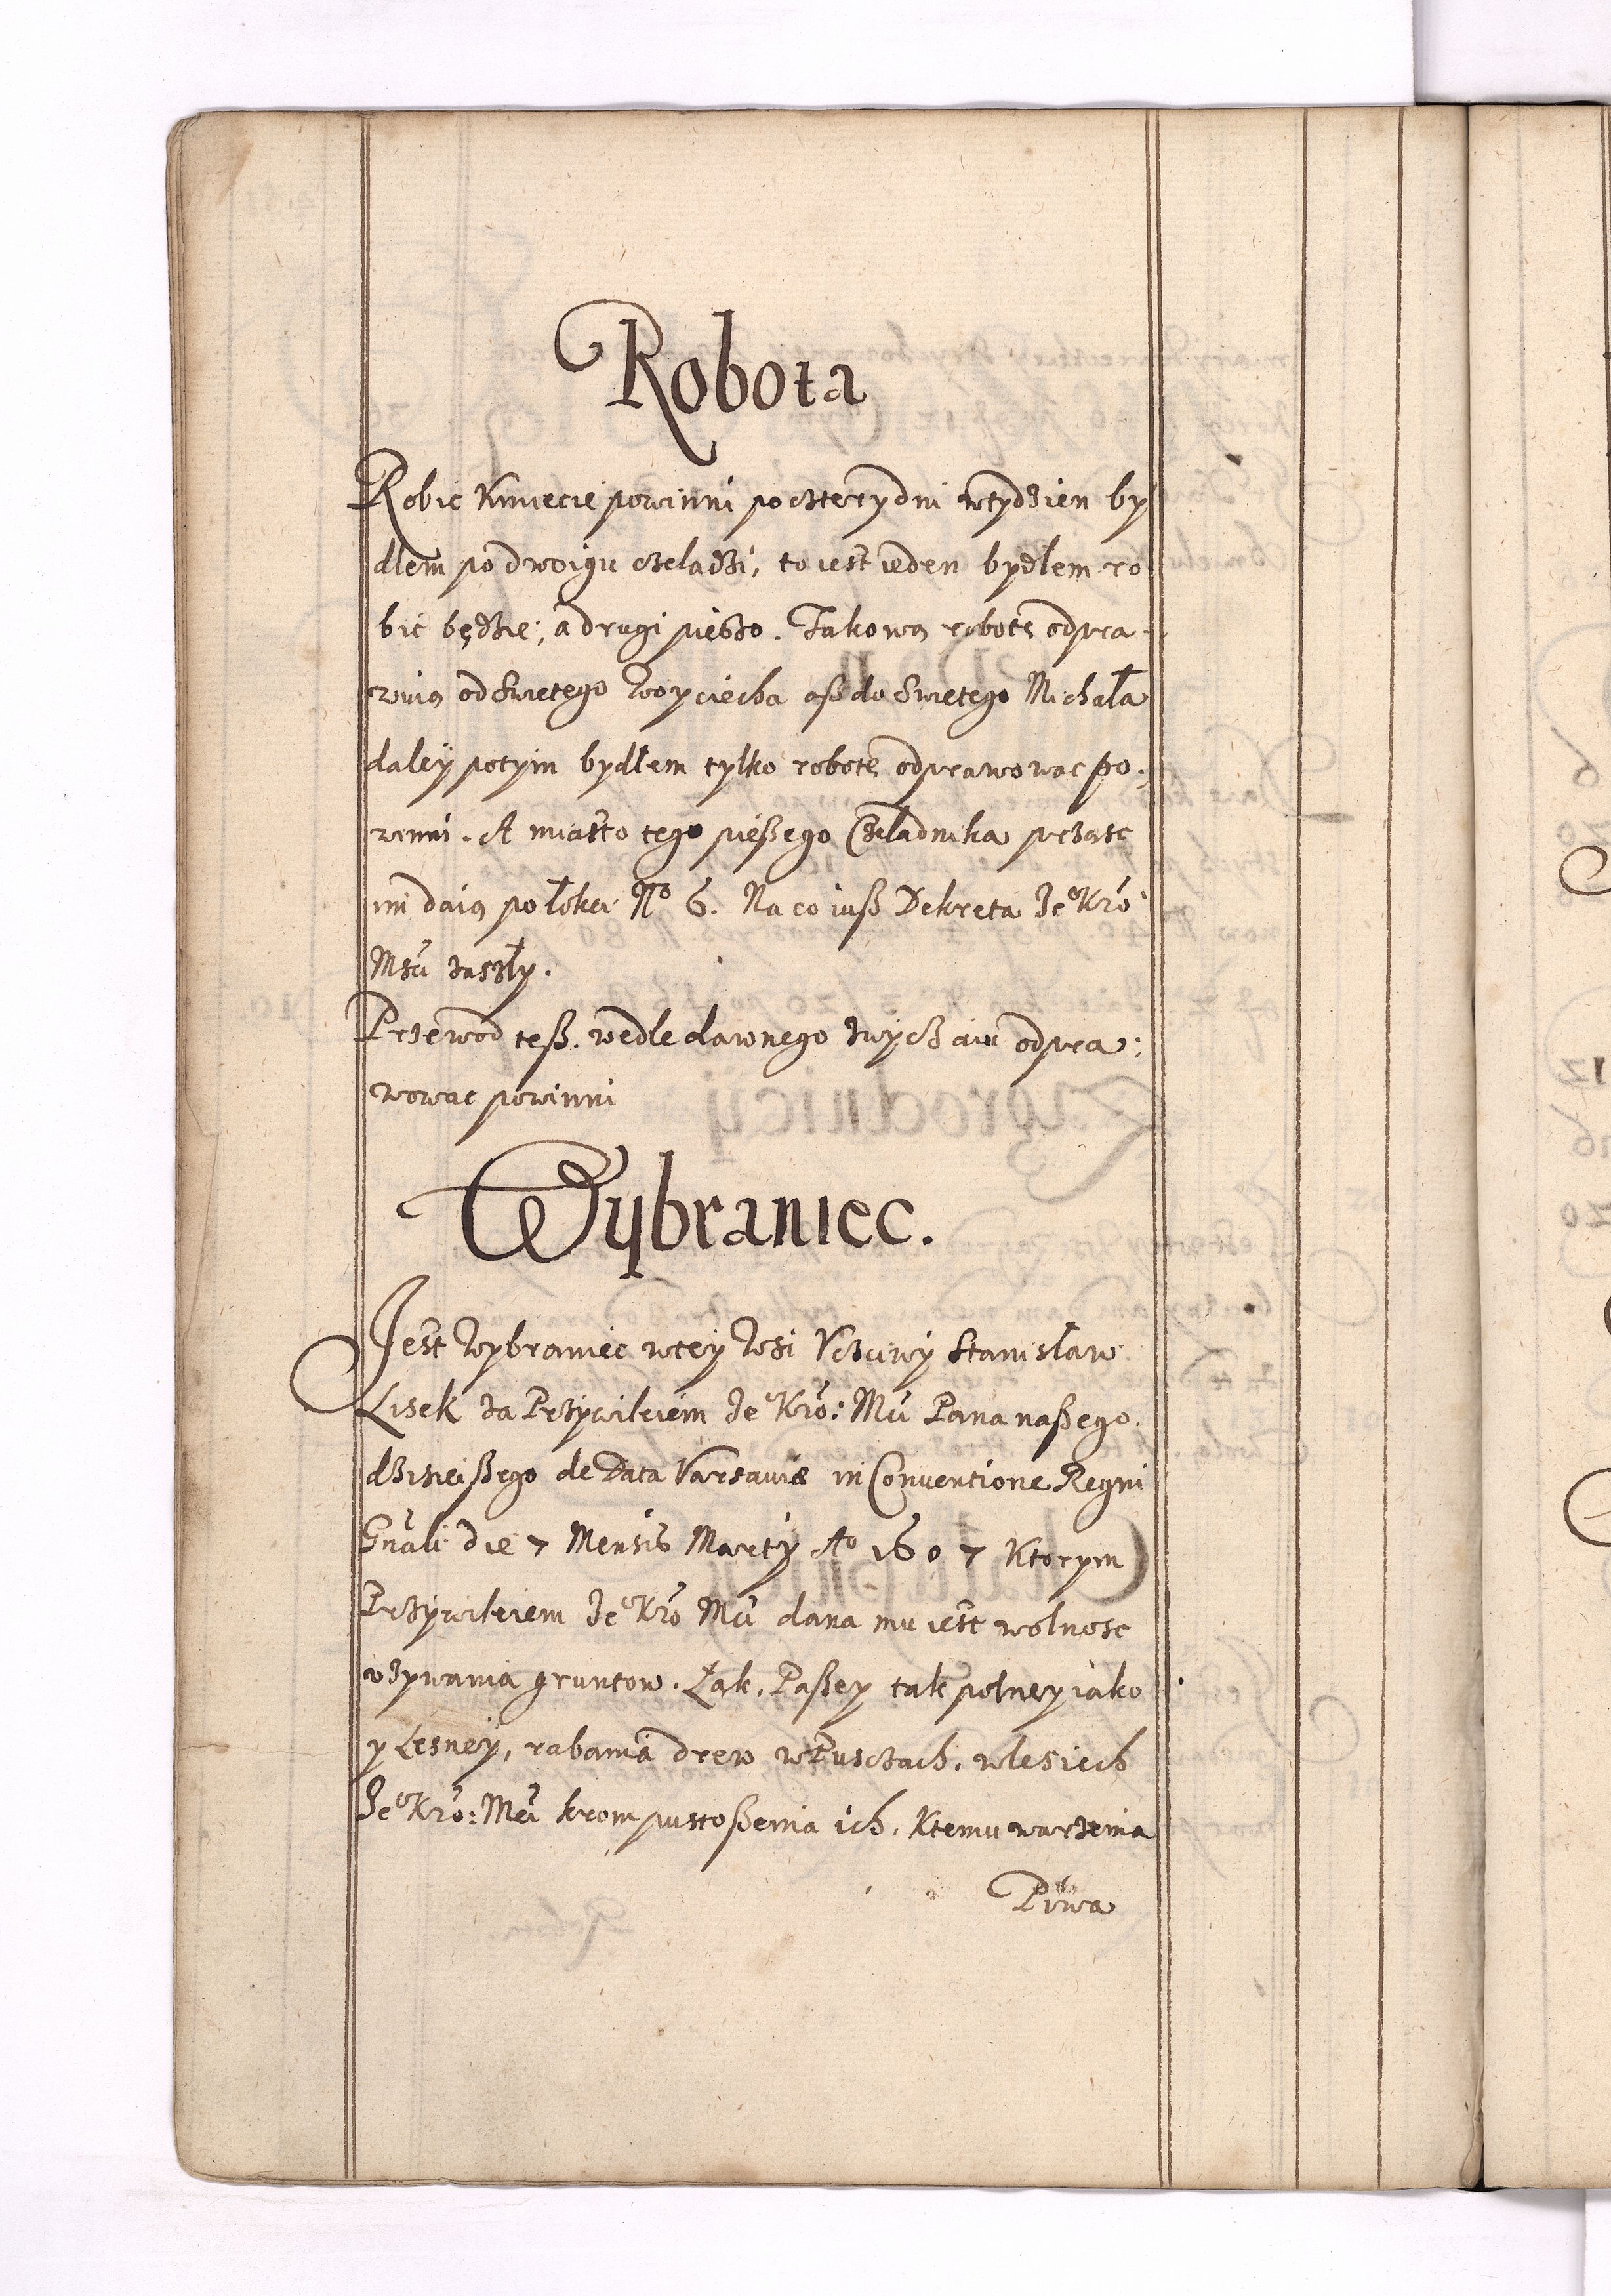 Robota
Robic Kmiecie powinni po czterÿ dni wtydzien by
dlem po dwoigu czeladzi, to iest ieden bydłem ro
bic będzie, a drugi pieszo. Takową robotę odpra
wuią od Swietego Woyciecha asz do Swietego Michała
daleÿ potym bydłem tylko robotę odprawowac po:
winni. A miasto tego pießego Czeladnika
daią po łokci No 6. Na co iuß Dekreta Je Kro
Mci zaszły.
Przewod teß wedle dawnego zwyczaiu odpra:
wowac powinni
Wybraniec.
Jest Wybraniec wtey Wsi Stanisław
Lisek za Przywileiem Je Kro: Mci Pana naßego
dzisieißego de Data Varsauiæ in Conuentione Regni
Gnali die 7 Mensis Martÿ Ao 1607 Ktorym
Przywileiem Je Kro Mci dana mu iest wolnosc
vzywania gruntow. Łąk, Paßey tak polney iako
y Lesneÿ, rabania drew w Pusczach, w lesiech
Je Kro: Mci krom pustoßenia ich, Ktemu warzenia
Piwa